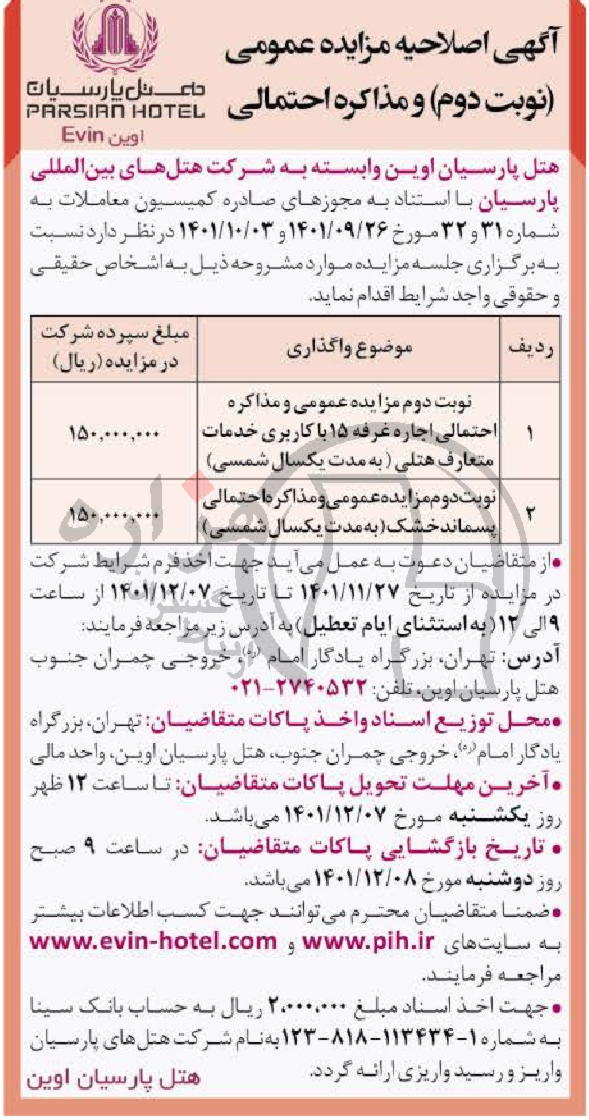 آگهی اصلاحیه مزایده عمومی
(نوبت دوم) و مذاکره احتمالی
هتل پارسیان
PARSIAN HOTEL
اوین Evin
هتل پارسیان اوین وابسته به شرکت هتل‌های بین‌المللی
پارسیان با استناد به مجوزهای صادره کمیسیون معاملات به
شماره ۳۱ و ۳۲ مورخ ۱۴۰۱/۰۹/۲۶ و ۱۴۰۱/۱۰/۰۳ در نظر دارد نسبت
به برگزاری جلسه مزایده موارد مشروحه ذیل به اشخاص حقیقی
و حقوقی واجد شرایط اقدام نماید.
ردیف موضوع واگذاری مبلغ سپرده شرکت
در مزایده (ریال)
نوبت دوم مزایده عمومی و مذاکره
۱ احتمالی اجاره غرفه ۱۵ با کاربری خدمات ۱۵۰,۰۰۰,۰۰۰
متعارف هتلی (به مدت یکسال شمسی)
۲ نوبت دوم مزایده عمومی و مذاکره احتمالی ۱۵۰,۰۰۰,۰۰۰
پسماند خشک (به مدت یکسال شمسی)
•از متقاضیان دعوت به عمل می‌آید جهت اخذ فرم شرایط شرکت
در مزایده از تاریخ ۱۴۰۱/۱۱/۲۷ تا تاریخ ۱۴۰۱/۱۲/۰۷ از ساعت
۹ الی ۱۲ (به استثنای ایام تعطیل) به آدرس زیر مراجعه فرمایند:
آدرس: تهران، بزرگراه یادگار امام (ره)، خروجی چمران جنوب
هتل پارسیان اوین، تلفن: ۲۷۴۰۵۳۲-۰۲۱
•محل توزیع اسناد و اخذ پاکات متقاضیان: تهران، بزرگراه
یادگار امام(ره)، خروجی چمران جنوب، هتل پارسیان اوین، واحد مالی
•آخرین مهلت تحویل پاکات متقاضیان: تا ساعت ۱۲ ظهر
روز یکشنبه مورخ ۱۴۰۱/۱۲/۰۷ می‌باشد.
• تاریخ بازگشایی پاکات متقاضیان: در ساعت ۹ صبح
روز دوشنبه مورخ ۱۴۰۱/۱۲/۰۸ می‌باشد.
•ضمنا متقاضیان محترم می‌توانند جهت کسب اطلاعات بیشتر
به سایت‌های www.pih.ir و www.evin-hotel.com
مراجعه فرمایند.
•جهت اخذ اسناد مبلغ ۲,۰۰۰,۰۰۰ ریال به حساب بانک سینا
به شماره ۱-۱۱۳۴۳۴-۸۱۸-۱۲۳ به نام شرکت هتل‌های پارسیان
واریز و رسید واریزی ارائه گردد.
هتل پارسیان اوین